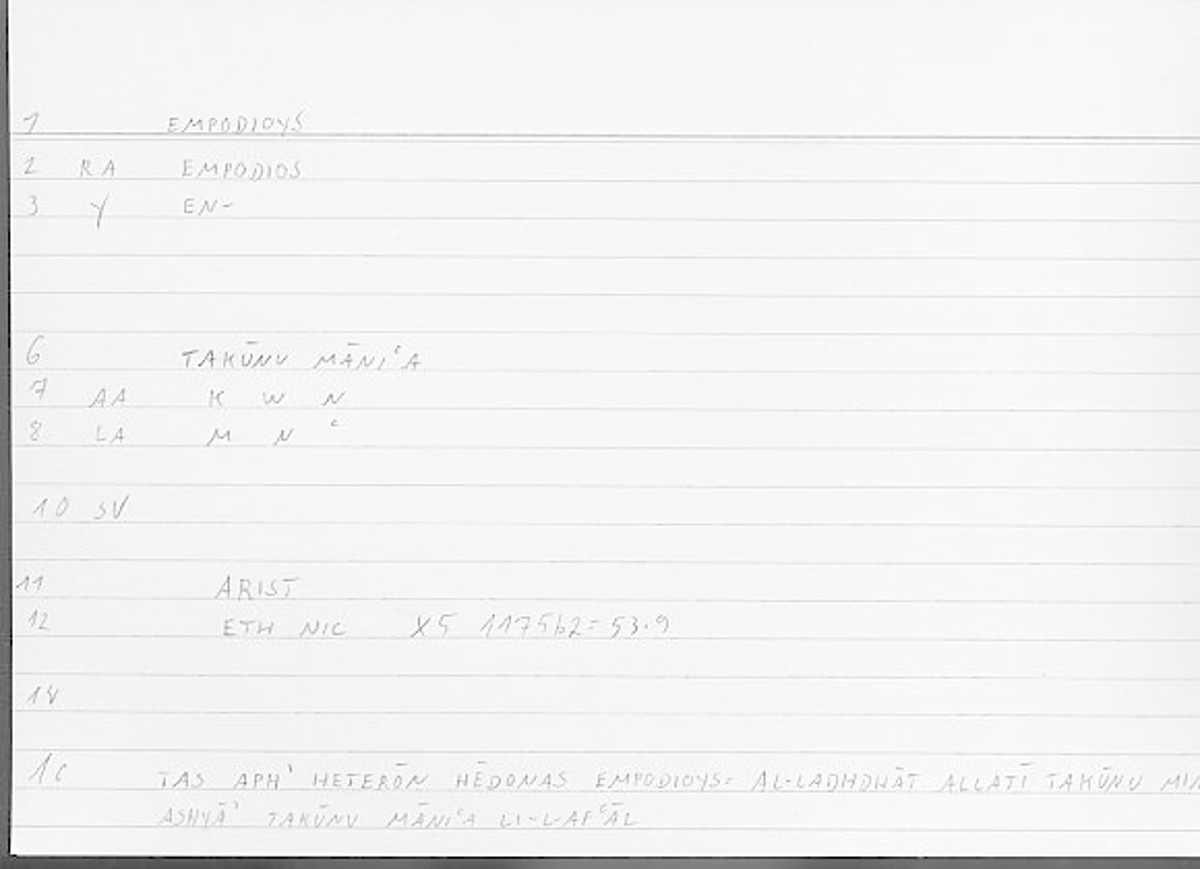 1 EMPODIOYS
2 RA EMPODIOS
3 Y EN-
6 TAKŪNU MĀNIʿA
7 AA K W N
8 LA M N ʿ
10 SV
11 ARIST
12 ETH NIC X5 1175b2= 53.9
14
1C TAS APH' HETERŌN HĒDONAS EMPODIOYS= AL-LADHDHĀT ALLATĪ TAKŪNU
ASHYĀʾ TAKŪNU MĀNIʿA LI-L-AFʿĀL